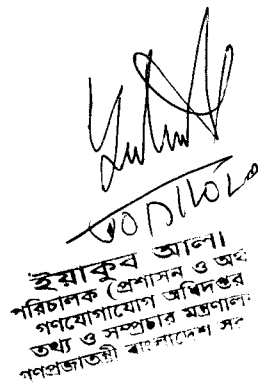 ইয়াকুব আলী
পরিচালক (প্রশাসন ও অর্থ
গণযোগাযোগ অধিদপ্তর
তথ্য ও সম্প্রচার মন্ত্রণাল
গণপ্রজাতন্ত্রী বাংলাদেশ সর